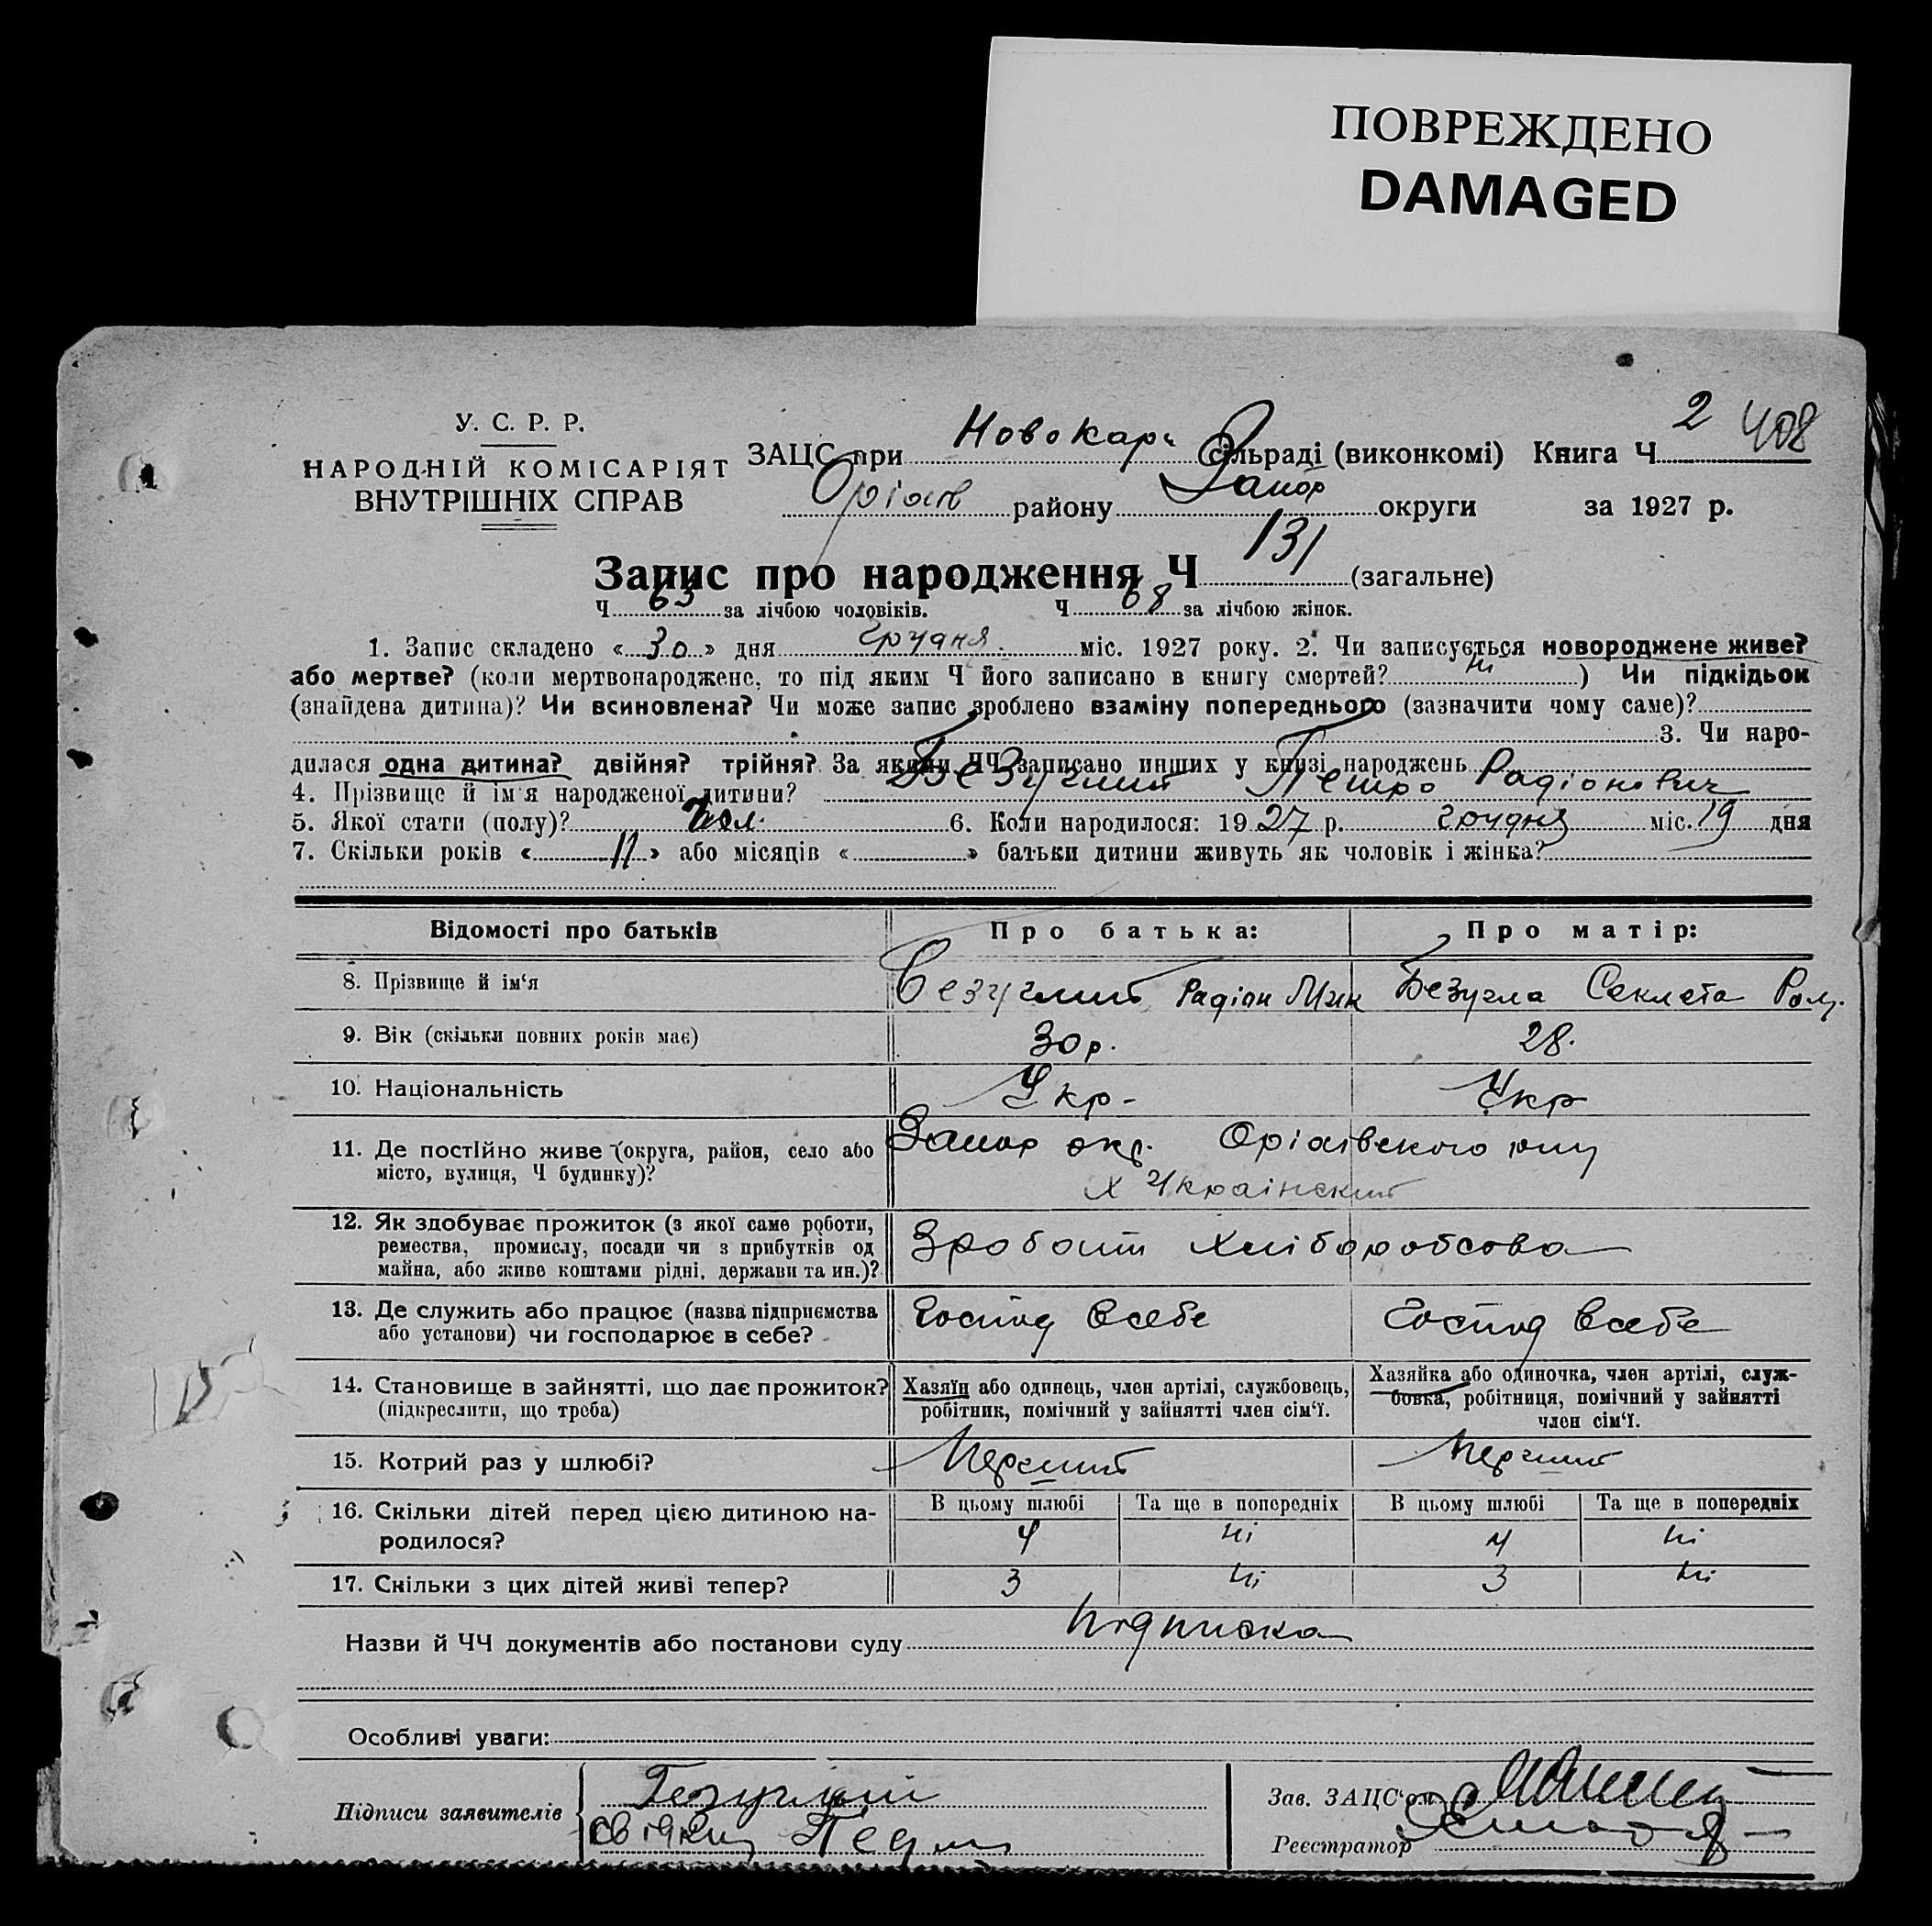 ПОВРЕЖДЕНО
DAMAGED
2 408
У. С. Р. Р.
НАРОДНІЙ КОМІСАРІЯТ
ВНУТРІШНІХ СПРАВ
ЗАЦС при Новокар сільраді (виконкомі) Книга Ч.
Оріхів району Запор округи за 1927 р.
Запис про народження Ч 131 (загальне)
Ч 63 за лічбою чоловіків. Ч 68 за лічбою жінок.
1. Запис складено «30» дня грудня міс. 1927 року. 2. Чи записується новороджене живе?
або мертве? (коли мертвонароджене, то під яким Ч його записано в книгу смертей? ні ) Чи підкідьок
(знайдена дитина)? Чи всиновлена? Чи може запис зроблено взаміну попереднього (зазначити чому саме)?
3. Чи наро-
дилася одна дитина? двійня? трійня? За якими ЧЧ записано инших у книзі народжень
4. Прізвище й ім'я народженої дитини? Безуглий Петро Радіонович
5. Якої стати (полу)? Чол. 6. Коли народилося: 1927 р. грудня міс. 19 дня
7. Скільки років «11» або місяців « » батьки дитини живуть як чоловік і жінка?
Відомості про батьків Про батька: Про матір:
8. Прізвище й ім'я Безуглий Радіон Мик Безугла Секлета Ром.
9. Вік (скільки повних років має) 30 р. 28.
10. Національність Укр- Укр
11. Де постійно живе (округа, район, село або
місто, вулиця, Ч будинку)?
Запор окр. Оріхівского рну
Х Украінский
12. Як здобуває прожиток (з якої саме роботи,
ремества, промислу, посади чи з прибутків од
майна, або живе коштами рідні, держави та ин.)?
Зробот
13. Де служить або працює (назва підприємства
або установи) чи господарює в себе?
Господ всебе Господ всебе
14. Становище в зайнятті, що дає прожиток?
(підкреслити, що треба)
Хазяїн або одинець, член артілі, службовець,
робітник, помічний у зайнятті член сім'ї.
Хазяйка або одиночка, член артілі, служ-
бовка, робітниця, помічний у зайнятті
член сім'ї.
15. Котрий раз у шлюбі? Перший Перший
16. Скільки дітей перед цією дитиною на-
родилося?
В цьому шлюбі Та ще в попередніх В цьому шлюбі Та ще в попередніх
4 ні 4 ні
17. Скільки з цих дітей живі тепер? 3 ні 3 ні
Назви й ЧЧ документів або постанови суду Підписка
Особливі уваги:
Підписи заявителів Безуглий
свідки
Зав. ЗАЦС'ом
Реєстратор